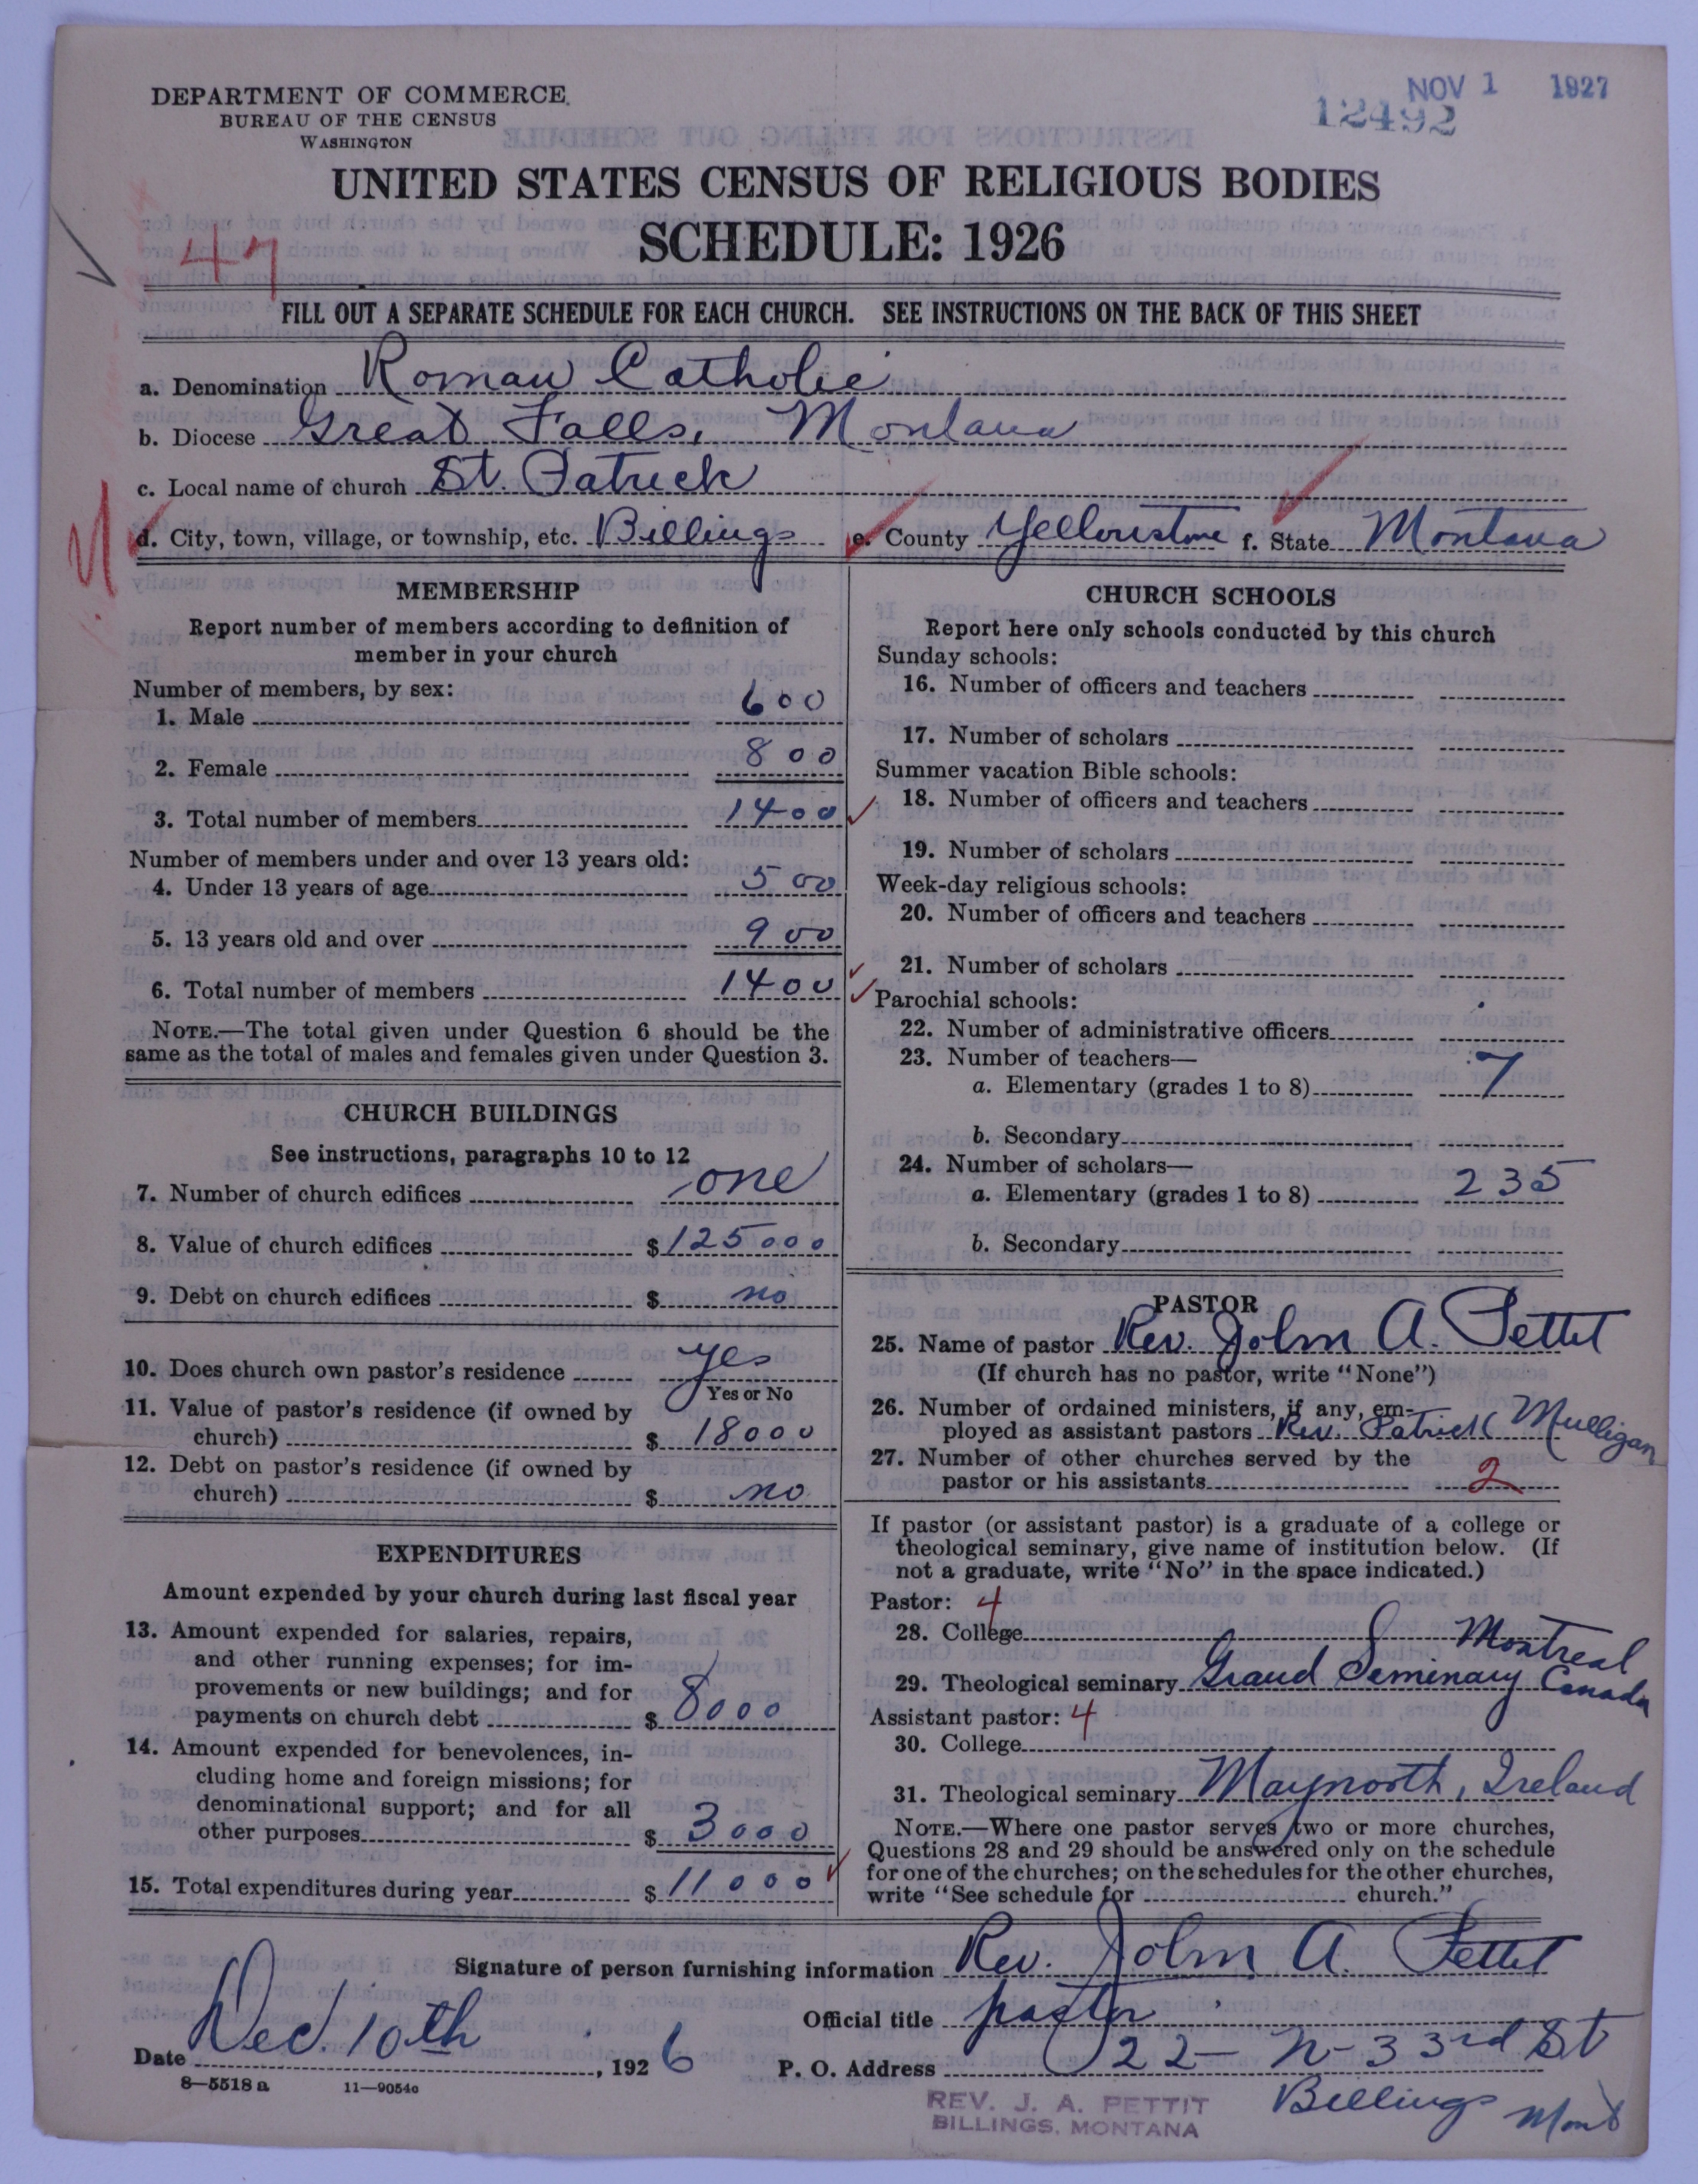 DEPARTMENT OF COMMERCE
BUREAU OF THE CENSUS
WASHINGTON
NOV 1 1927
12492
UNITED STATES CENSUS OF RELIGIOUS BODIES
SCHEDULE: 1926
47
FILL OUT A SEPARATE SCHEDULE FOR EACH CHURCH. SEE INSTRUCTIONS ON THE BACK OF THIS SHEET
a. Denomination Roman Catholic
b. Diocese Great Falls, Montana
c. Local name of church St. Patrick
d. City, town, village, or township, etc. Billings e. County Yellowstone f. State Montana
MEMBERSHIP
Report number of members according to definition of
member in your church
Number of members, by sex:
1. Male 600
2. Female 800
3. Total number of members 1400
Number of members under and over 13 years old:
4. Under 13 years of age 500
5. 13 years old and over 900
6. Total number of members 1400
NOTE.—The total given under Question 6 should be the
same as the total of males and females given under Question 3.
CHURCH BUILDINGS
See instructions, paragraphs 10 to 12
7. Number of church edifices one
8. Value of church edifices $ 125000
9. Debt on church edifices $ no
10. Does church own pastor's residence yes
Yes or No
11. Value of pastor's residence (if owned by
church) $ 18000
12. Debt on pastor's residence (if owned by
church) $ no
EXPENDITURES
Amount expended by your church during last fiscal year
13. Amount expended for salaries, repairs,
and other running expenses; for im-
provements or new buildings; and for
payments on church debt $ 8000
14. Amount expended for benevolences, in-
cluding home and foreign missions; for
denominational support; and for all
other purposes $ 3000
15. Total expenditures during year $ 11000
CHURCH SCHOOLS
Report here only schools conducted by this church
Sunday schools:
16. Number of officers and teachers
17. Number of scholars
Summer vacation Bible schools:
18. Number of officers and teachers
19. Number of scholars
Week-day religious schools:
20. Number of officers and teachers
21. Number of scholars
Parochial schools:
22. Number of administrative officers
23. Number of teachers—
a. Elementary (grades 1 to 8) 7
b. Secondary
24. Number of scholars—
a. Elementary (grades 1 to 8) 235
b. Secondary
PASTOR
25. Name of pastor Rev. John A. Pettit
(If church has no pastor, write "None")
26. Number of ordained ministers, if any, em-
ployed as assistant pastors Rev. Patrick Mulligan
27. Number of other churches served by the
pastor or his assistants 2
If pastor (or assistant pastor) is a graduate of a college or
theological seminary, give name of institution below. (If
not a graduate, write "No" in the space indicated.)
Pastor: 4
28. College
29. Theological seminary Grand Seminary Montreal Canada
Assistant pastor: 4
30. College
31. Theological seminary Maynooth, Ireland
NOTE.—Where one pastor serves two or more churches,
Questions 28 and 29 should be answered only on the schedule
for one of the churches; on the schedules for the other churches,
write "See schedule for church."
Signature of person furnishing information Rev. John A. Pettit
Official title pastor
Date Dec. 10th, 1926 P. O. Address 22- N- 33rd St
Billings Mont
8—5518 a 11—9054c
REV. J. A. PETTIT
BILLINGS, MONTANA